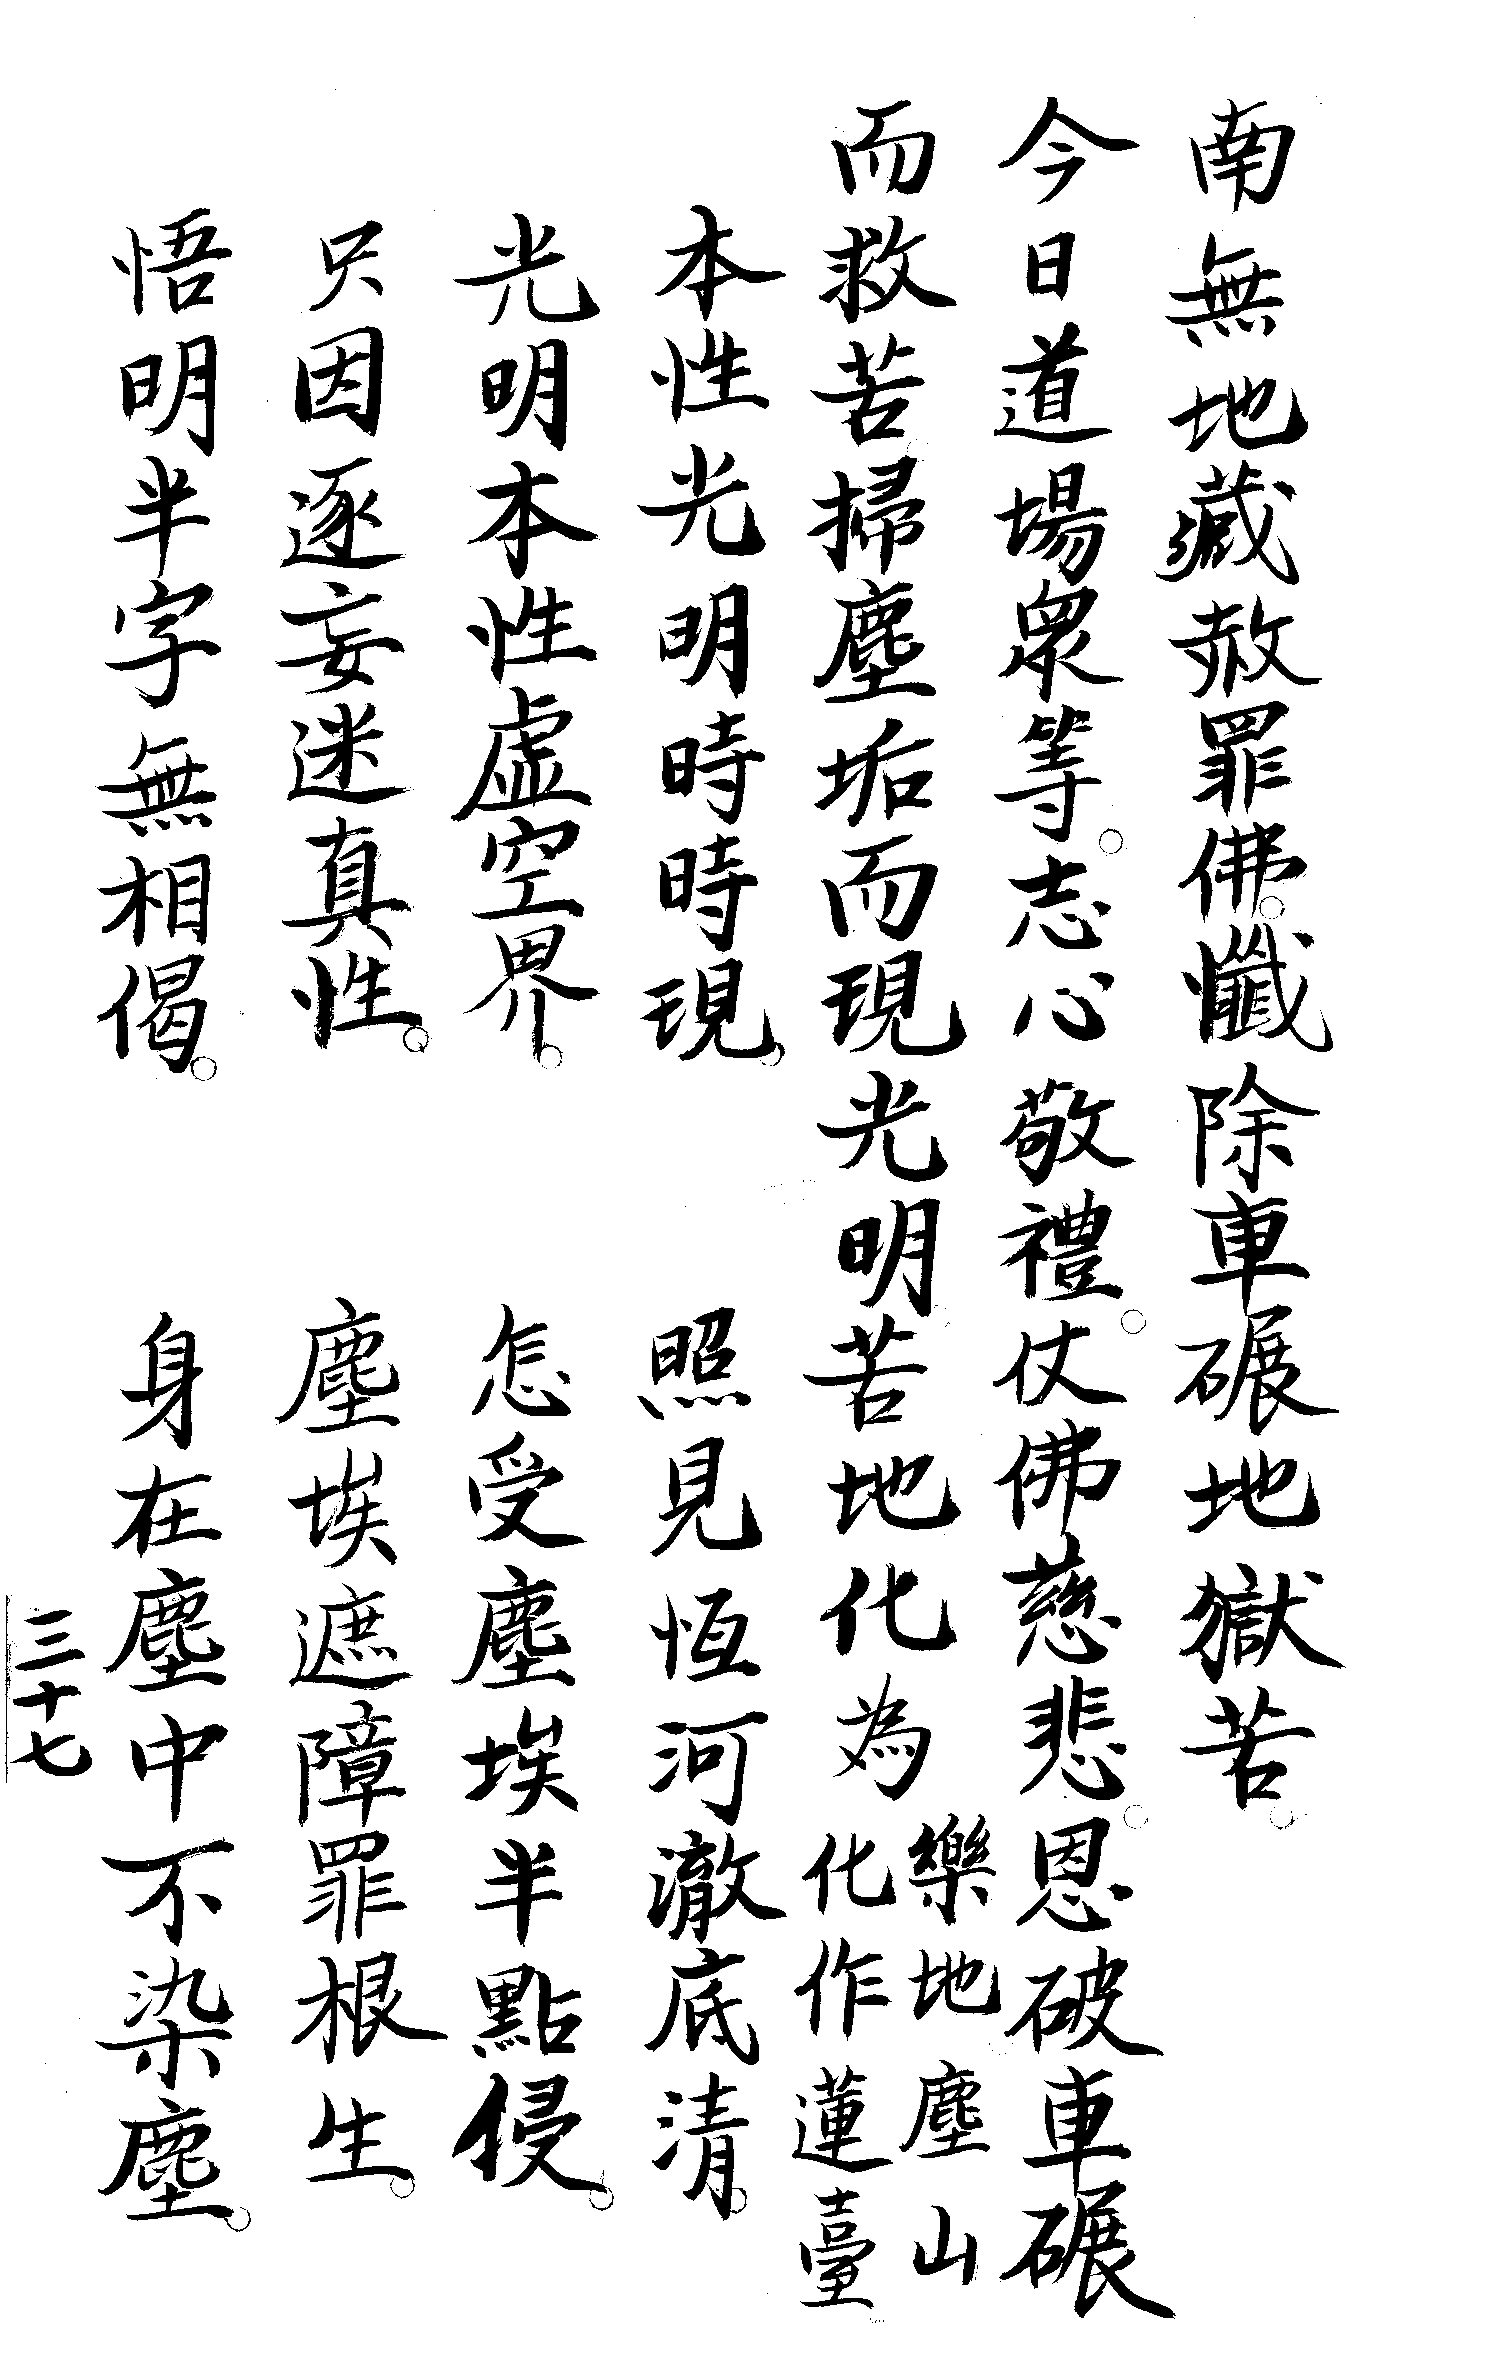 南無地藏赦罪佛。懺除車碾地獄苦。
今日道場眾等。志心敬禮。仗佛慈悲。恩破車碾
而救苦掃塵垢而現光明苦地化為樂地塵山
化作蓮臺
本性光明時時現。照見恆河澈底清。
光明本性虛空界。怎受塵埃半點侵。
只因逐妄迷真性。塵埃遮障罪根生。
悟明半字無相偈。身在塵中不染塵。
三十七